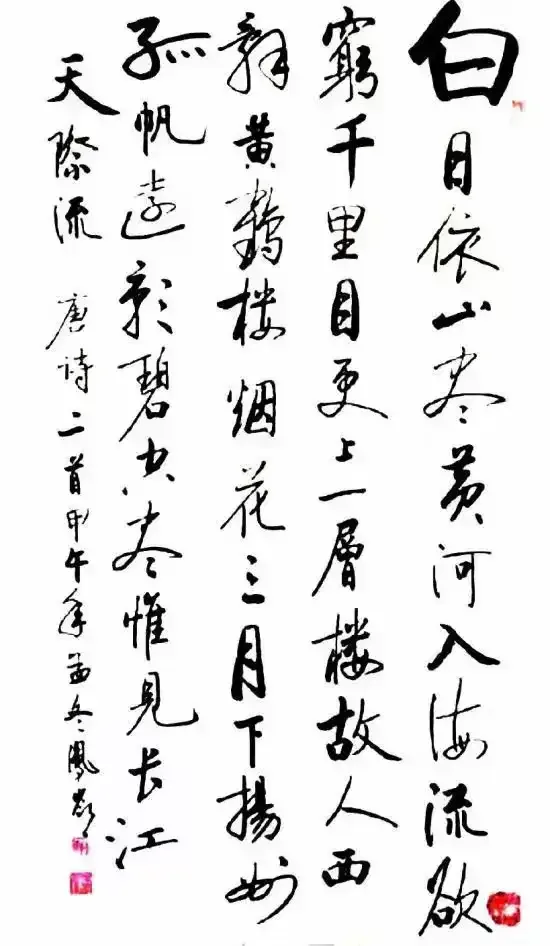 白日依山尽黄河入海流欲
窮千里目更上一層楼故人西
辞黄鹤楼烟花三月下揚州
孤帆遠影碧空尽惟見长江
天際流
唐诗二首甲午年孟冬鳳